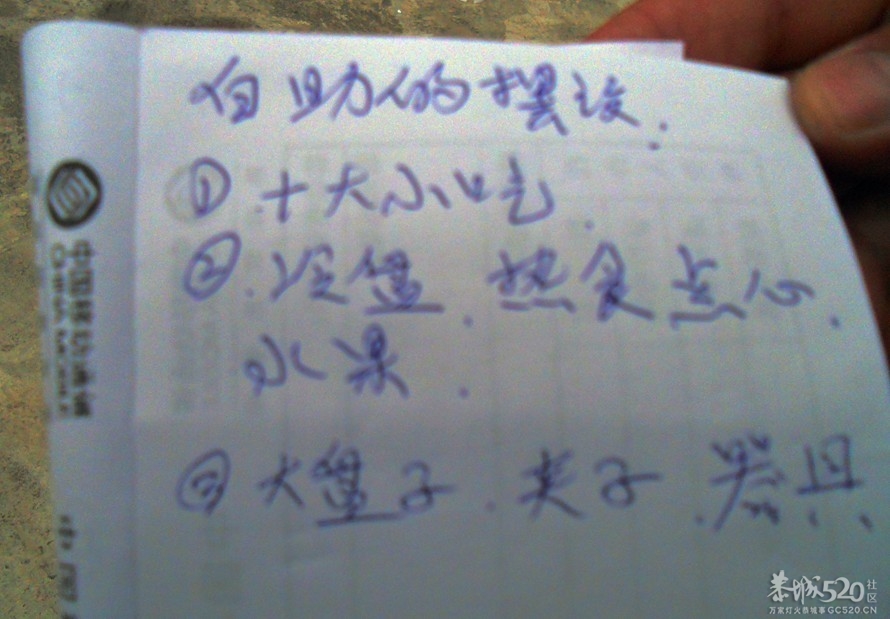 自助的摆设.
① 十大小吃.
② 冷盘. 热食 点心.
水果.
③ 大盘子. 夹子. 器具.
中国移动通信
CHINA MOBILE
恭城520社区
万家灯火恭城事GC520.CN